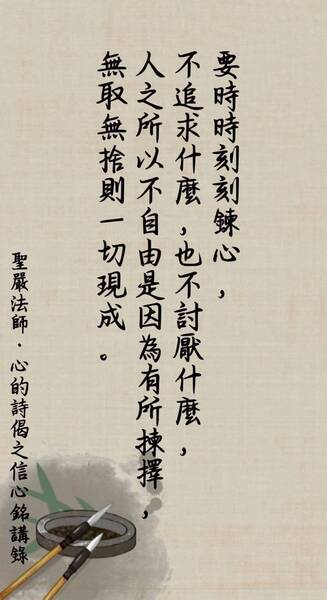 要時時刻刻鍊心，
不追求什麼，也不討厭什麼，
人之所以不自由是因為有所揀擇，
無取無捨則一切現成。
聖嚴法師．心的詩偈之信心銘講錄